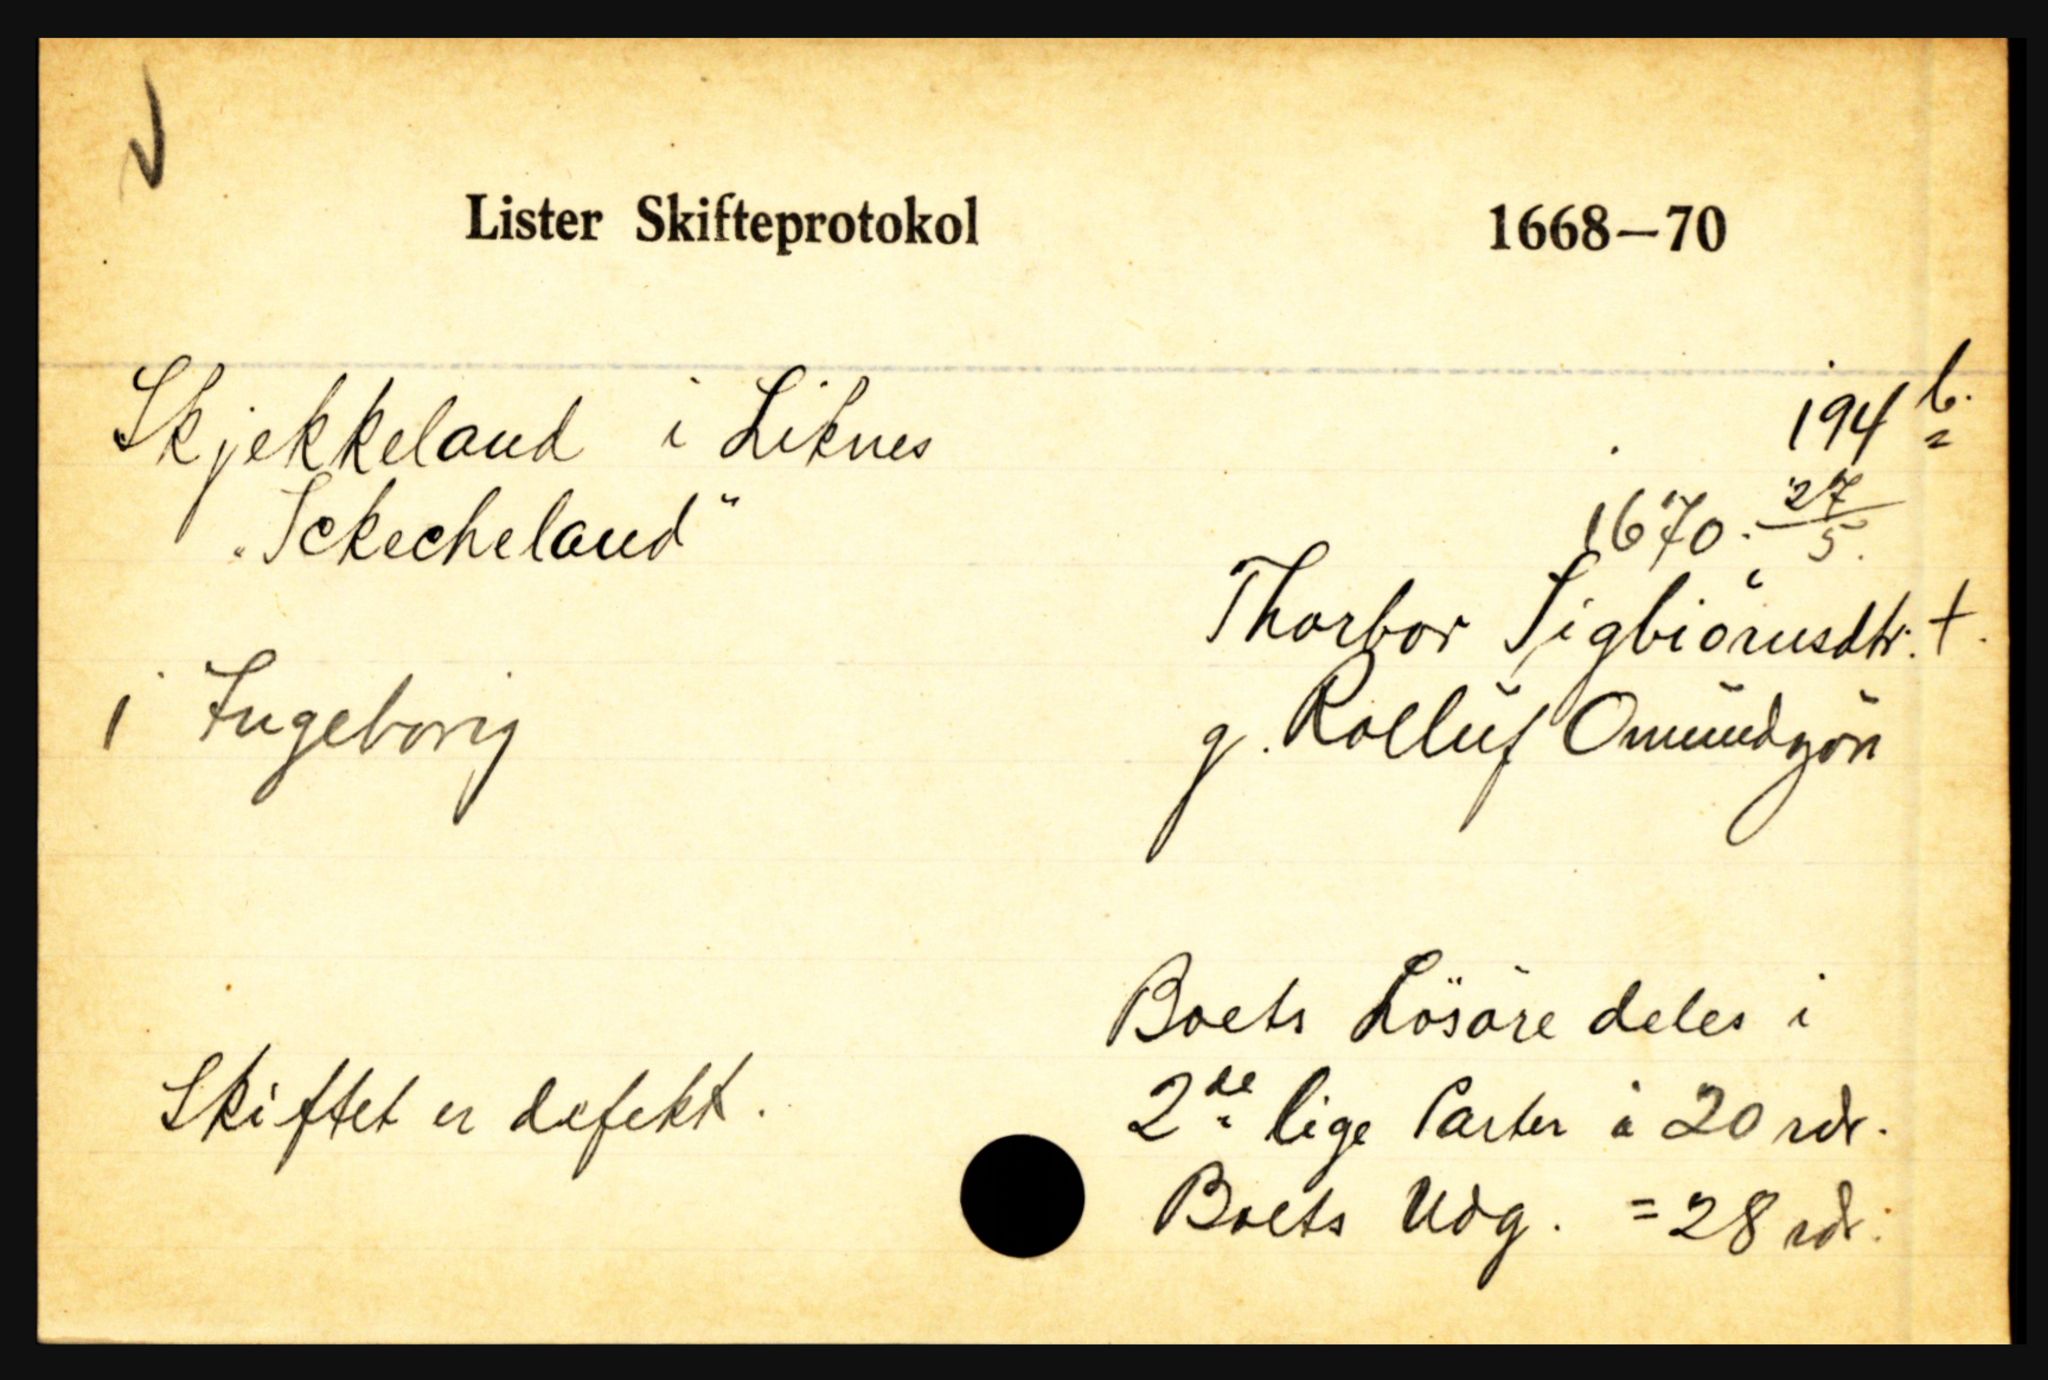 Lister Skifteprotokol 1668—70
Skjekkeland i Liknes 194 b.
"Sckecheland" 1670. 27/5.
Thorbor Sigbiörnsdtr. +.
1 Ingeborig g. Rolluf Omundzön
Boets Lösöre deles i
Skiftet er defekt. 2de lige Parter à 20 rdr.
Boets Udg. = 28 rdr.